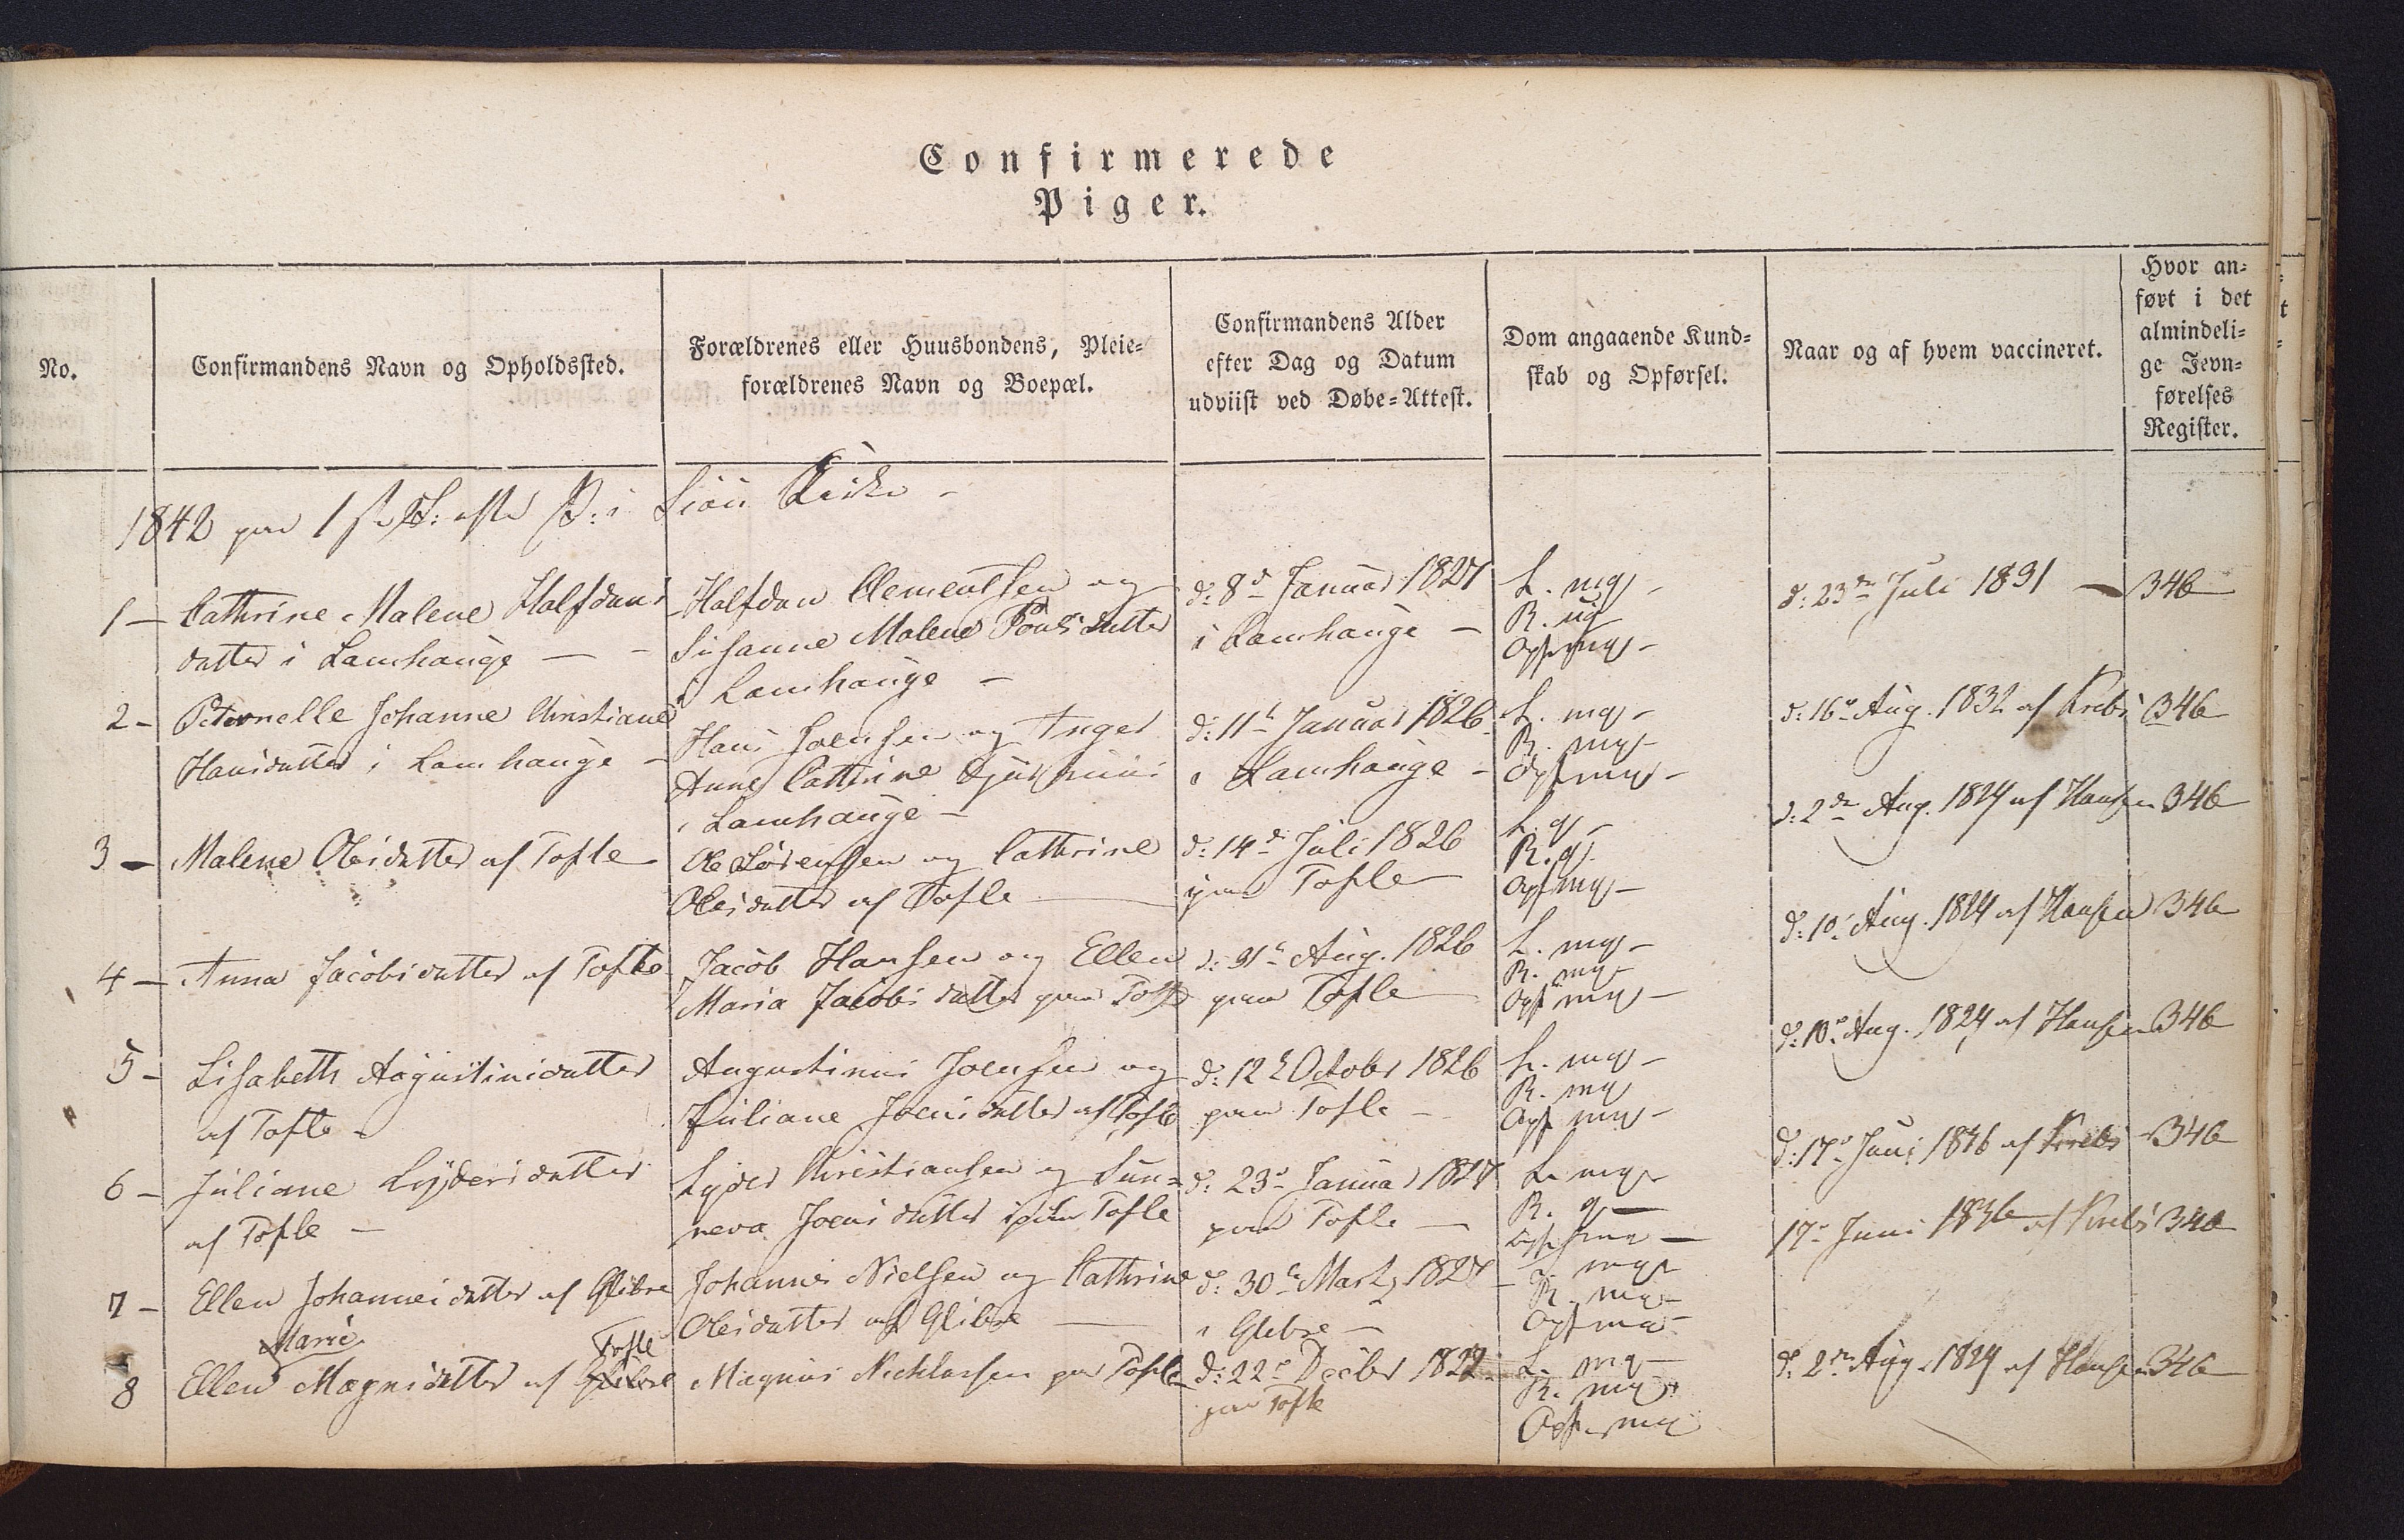 Confirmerede
Piger.
No.
Confirmandens Navn og Opholdssted.
Forældrenes eller Huusbondens, Pleie-
forældrenes Navn og Boepæl.
Confirmandens Alder
efter Dag og Datum
udviist ved Døbe-Attest.
Dom angaaende Kund-
skab og Opførsel.
Naar og af hvem vaccineret.
Hvor an-
ført i det
almindeli-
ge Jevn-
førelses
Register.
1842 paa 1ste S: efter P: i Siøu Kirke -
1 - Cathrine Malene Halfdans
datter i Lamhauge -
Halfdan Clementsen og
Susanne Malene Pouls datter
i Lamhauge -
d: 8d Januar 1827
i Lamhauge -
K. mg -
R. ug
Opf. mg -
d: 23de Juli 1831 -
346
2 - Peternelle Johanne Christiane
Hansdatter i Lamhauge -
Hans Joensen og Inger
Anne Cathrine
i Lamhauge -
d: 11t Januar 1826
i Lamhauge -
K. mg -
R. mg -
Opf mg -
d: 16d Aug. 1832 af Krebs
346
3 - Malene Olesdatter af Tofte
Ole Sørensen og Cathrine
Olesdatter af Tofte
d: 14d Juli 1826
paa Tofte
K. g -
R. g.
Opf mg -
d: 2de Aug. 1824 af Hansen
346
4 - Anna Jacobsdatter af Tofte
Jacob Hansen og Ellen
Maria Jacobs datter paa Tofte
d: 31t Aug. 1826
paa Tofte
K. mg -
R. mg -
Opf mg -
d: 10. Aug. 1824 af Hansen
346
5 - Lisabeth Augustinusdatter
af Tofte -
Augustinus Joensen og
Juliane Joensdatter af Tofte
d: 12t October 1826
paa Tofte -
K. mg -
R. mg
Opf mg -
d: 10d Aug. 1824 af Hansen
346
6 - Juliane Lyders datter
af Tofte -
Lyder Christiansen og Sun-
neva Joensdatter paa Tofte
d: 23d Januar 1827
paa Tofte -
K. mg -
R. g -
Opf mg -
d: 17d Juni 1836 af Krebs
346
7 - Ellen Johannesdatter af Glibre
Johannes Nielsen og Cathrine
Olesdatter af Glibre
d: 30te Marts 1827 -
i Glibre -
K. mg -
R. mg -
Opf mg -
17d Juni 1836 af Krebs
346
Marie
Tofte
8 Ellen Magnisdatter af Glibre
Magnus Nicklassen paa Tofte
d: 22d Decbr 1822
paa Tofte
K. mg -
R. mg
Opf. mg
d: 2de Aug. 1824 af Hansen
346